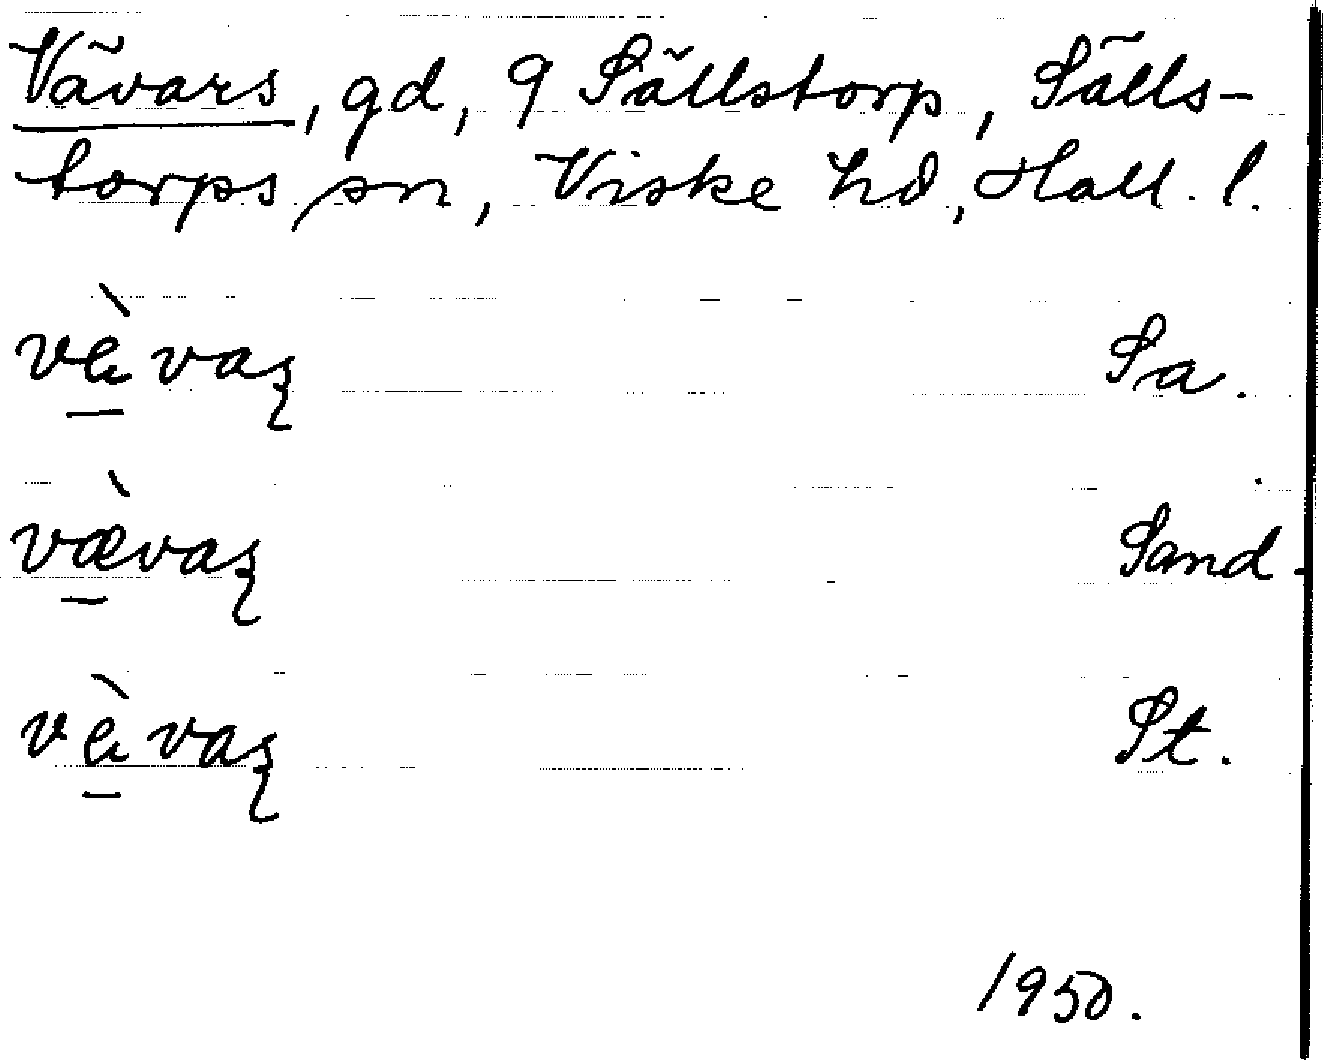 Vävars, gd, 9 Sällstorp, Sälls-
torps sn, Viske hd, Hall. l.
Sa.
vævaʂ Sand.
St.
1950.